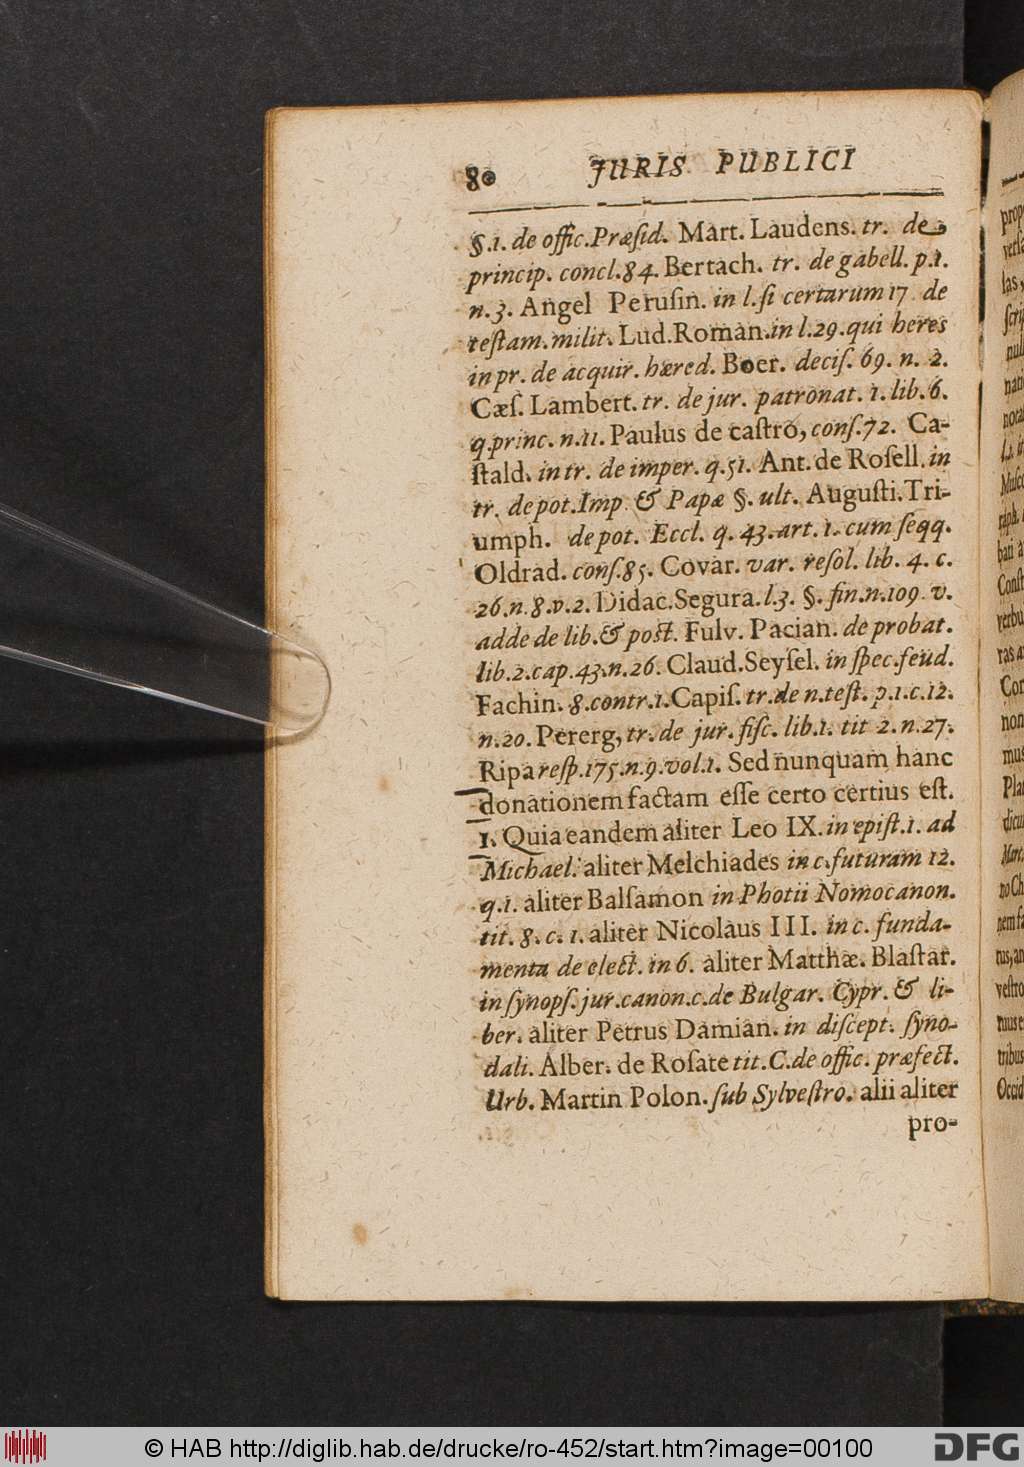 80 JURIS PUBLICI
§.1. de offic. Præsid. Mart. Laudens. tr. de
princip. concl. 84. Bertach. tr. de gabell. p. 1.
n. 3. Angel Perusin. in l. si certarum 17 de
testam. milit. Lud. Roman. in l. 29. qui heres
in pr. de acquir. hæred. Boer. decis. 69. n. 2.
Cæs. Lambert. tr. de jur. patronat. 1. lib. 6.
q. princ. n. 11. Paulus de castro, cons. 72. Ca-
stald. in tr. de imper. q. 51. Ant. de Rosell. in
tr. de pot. Imp & Papæ §. ult. Augusti. Tri-
umph. de pot. Eccl. q. 43. art. 1. cum seqq.
Oldrad. cons. 85. Covar. var. resol. lib. 4. c.
26. n. 8. v. 2. Didac. Segura. l. 3. §. fin. n. 109. v.
adde de lib. & post. Fulv. Pacian. de probat.
lib. 2. cap. 43. n. 26. Claud. Seysel. in spec. feud.
Fachin. 8. contr. 1. Capis. tr. de n. test. p. 1. c. 12.
n. 20. Pererg, tr. de jur. fisc. lib. 1. tit 2. n. 27.
Ripa resp. 175. n. 9. vol. 1. Sed nunquam hanc
donationem factam esse certo certius est.
1. Quia eandem aliter Leo IX. in epist. 1. ad
Michael. aliter Melchiades in c. futuram 12.
q. 1. aliter Balsamon in Photii Nomocanon.
tit. 8. c. 1. aliter Nicolaus III. in c. funda-
menta de elect. in 6. aliter Matthæ. Blastar.
in synops. jur. canon. c. de Bulgar. Cypr. & li-
ber. aliter Petrus Damian. in discept. syno-
dali. Alber. de Rosate tit. C. de offic. præfect.
Urb. Martin Polon. sub Sylvestro. alii aliter
pro-
© HAB http://diglib.hab.de/drucke/ro-452/start.htm?image=00100
DFG